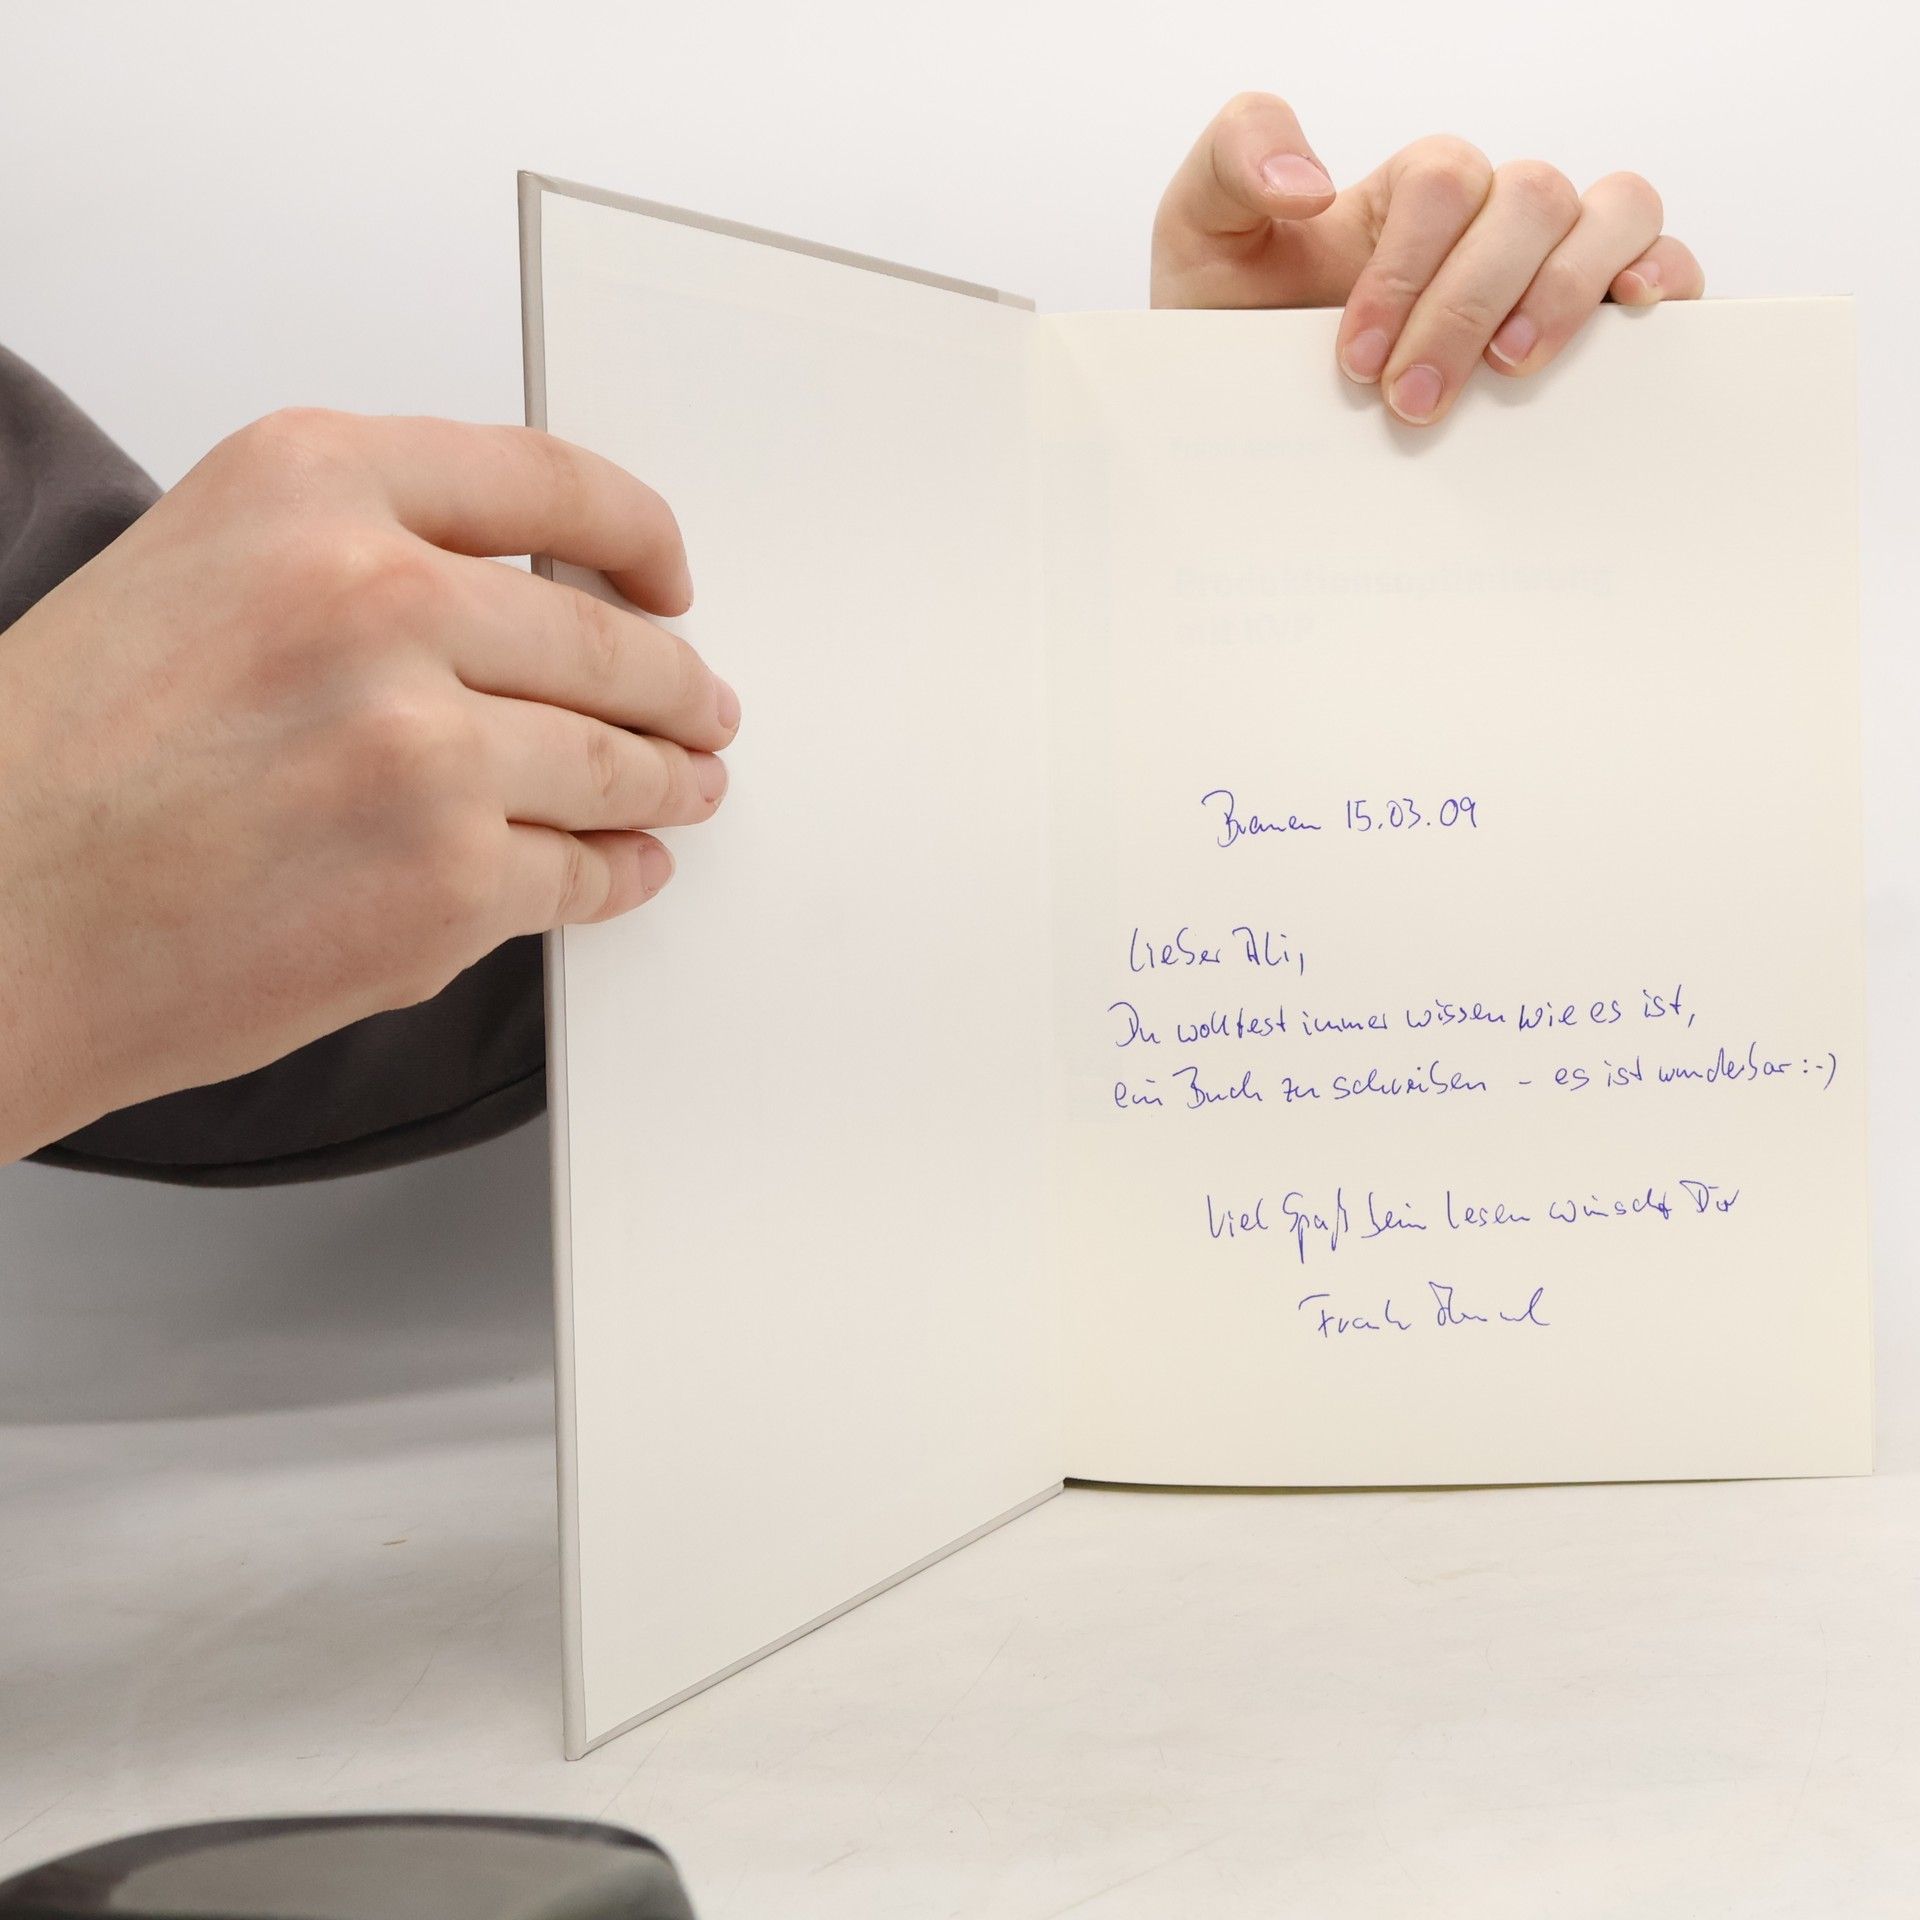 Produktionsoptimierung
mit KVP
Bremen 15.03.09
Lieber Ali,
Du wolltest immer wissen wie es ist,
ein Buch zu schreiben - es ist wunderbar :-)
Viel Spaß beim Lesen wünscht Dir
Frank